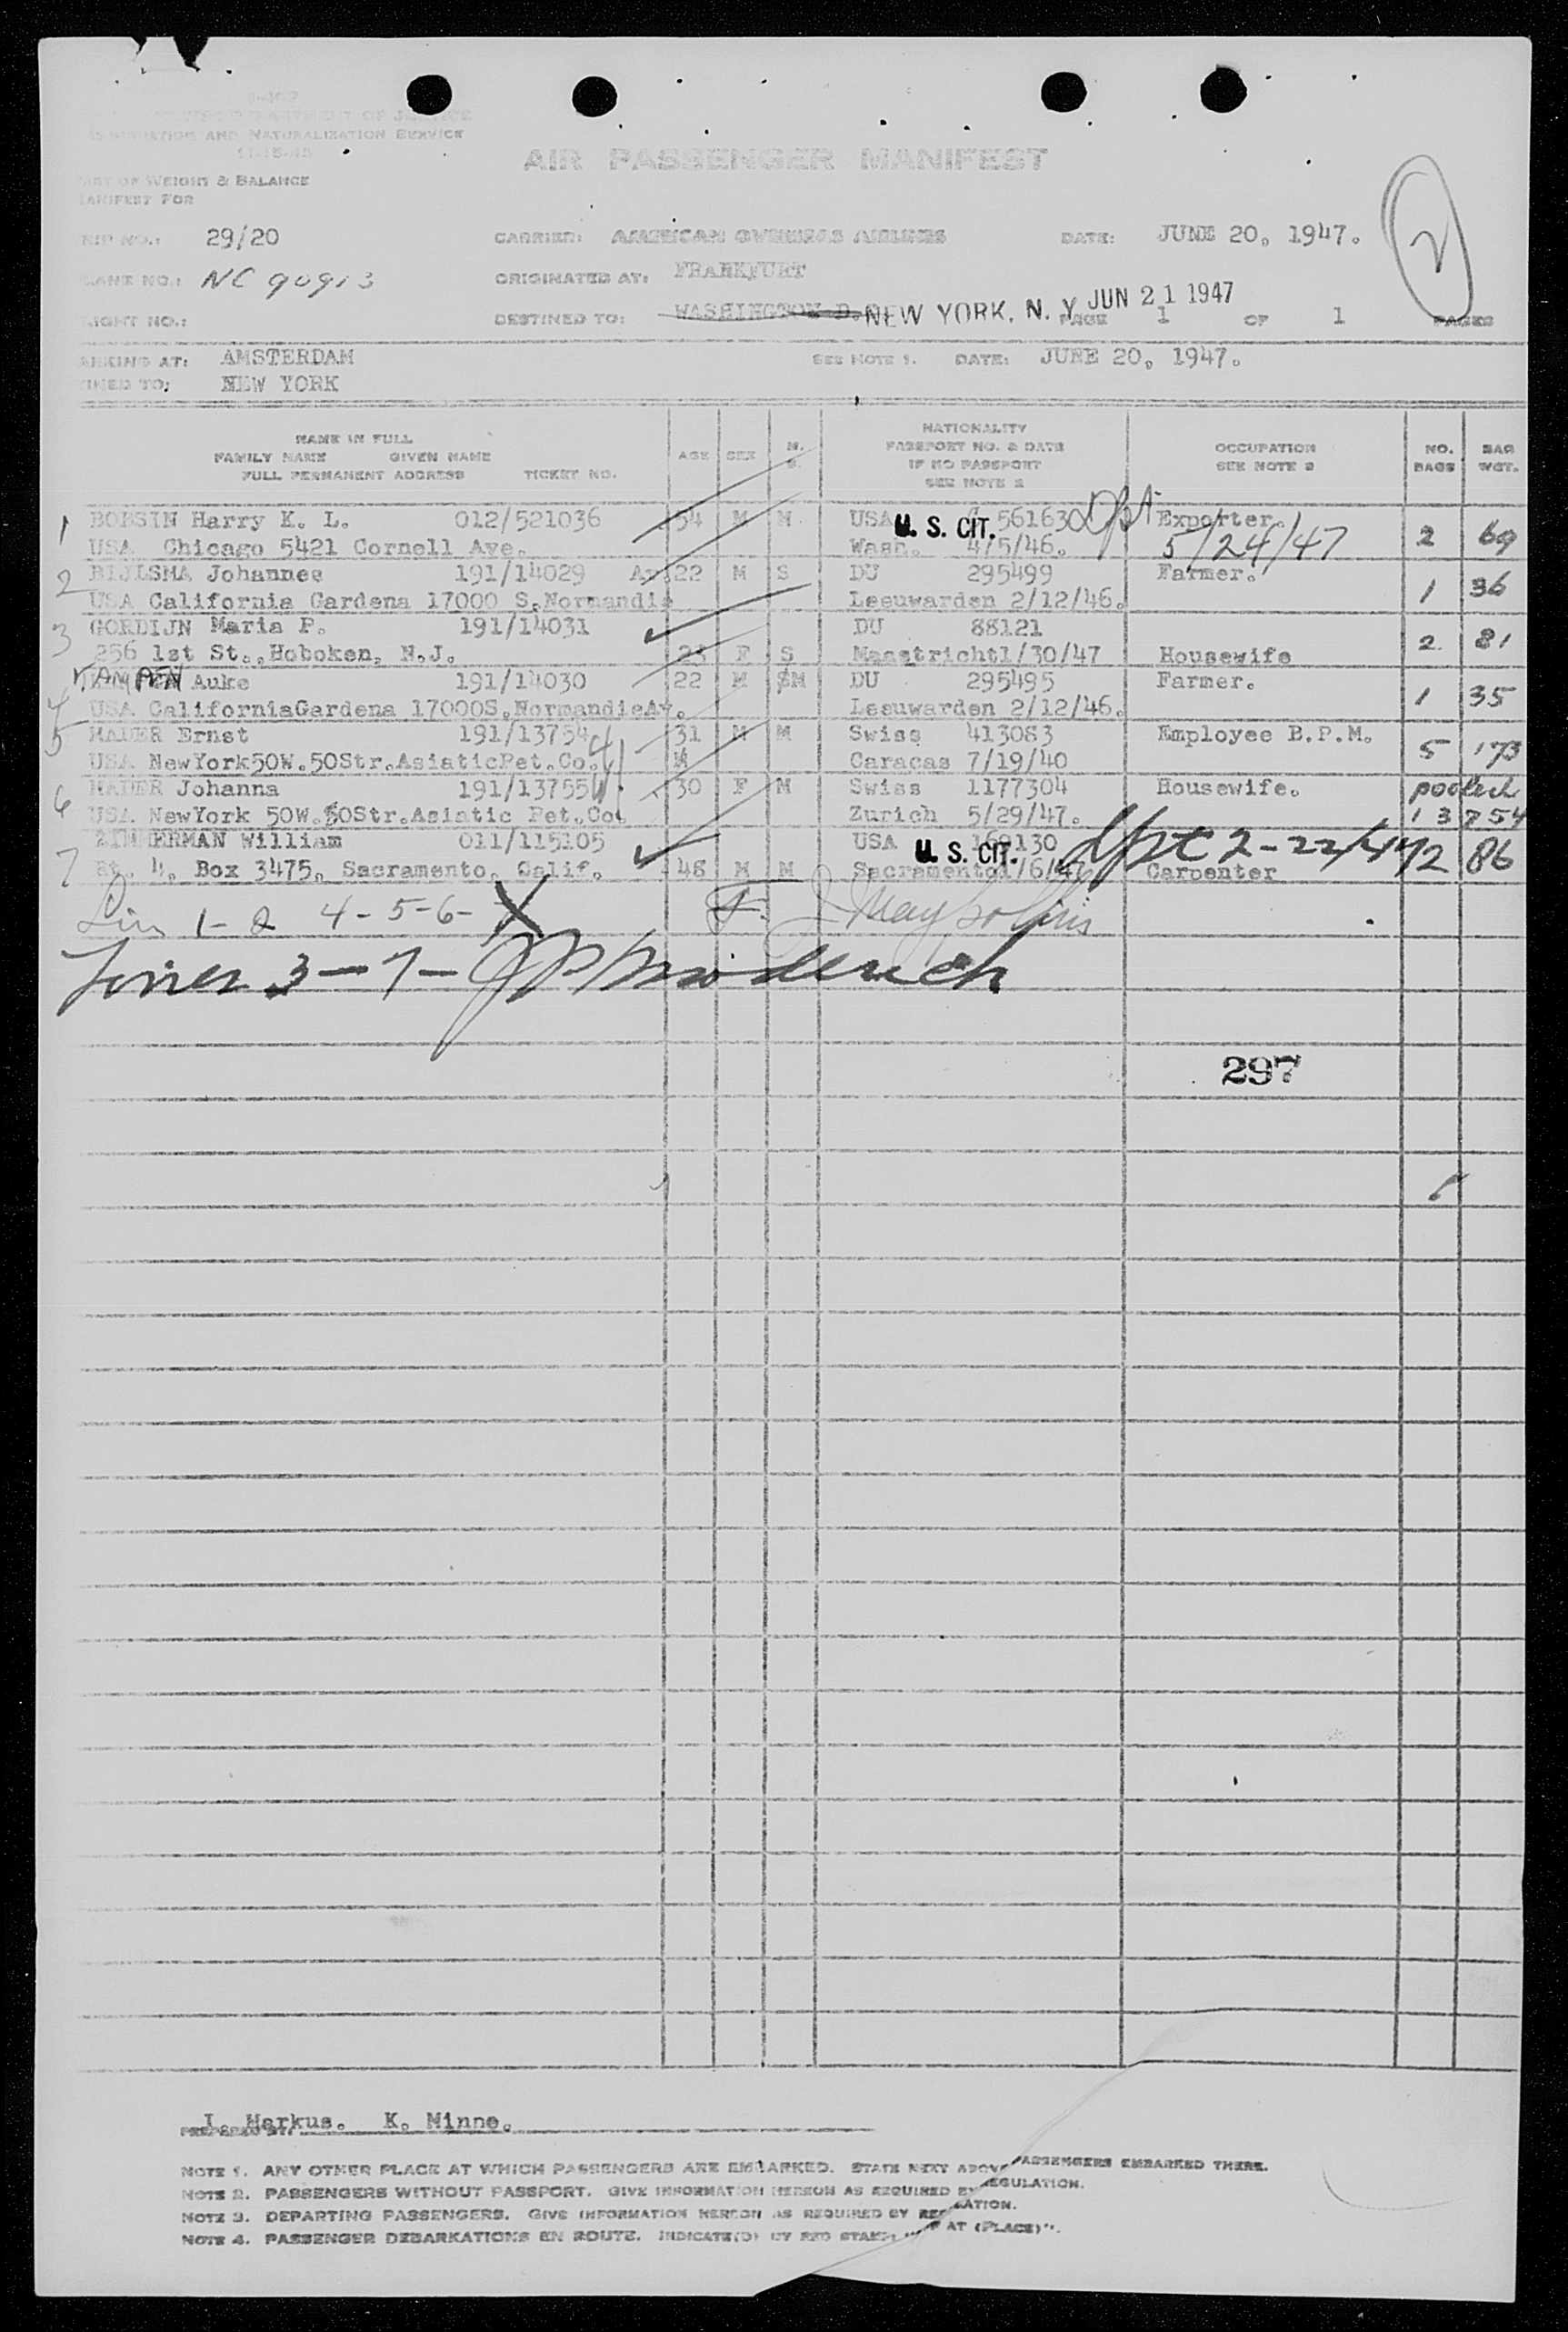 I-467
DEPARTMENT OF JUSTICE
IMMIGRATION AND NATURALIZATION SERVICE
11-15-45
AIR PASSENGER MANIFEST
PART OF WEIGHT & BALANCE
MANIFEST FOR
TRIP NO.: 29/20 CARRIER: AMERICAN OVERSEAS AIRLINES DATE: JUNE 20, 1947. 2
PLANE NO.: NC 90913 ORIGINATED AT: FRANKFURT
FLIGHT NO.: DESTINED TO: WASHINGTON D. NEW YORK, N. Y. JUN 21 1947 PAGE 1 OF 1 PAGES
AT: AMSTERDAM SEE NOTE 1. DATE: JUNE 20, 1947.
TO: NEW YORK
NAME IN FULL AGE SEX M. S. NATIONALITY OCCUPATION NO. BAG
FAMILY NAME GIVEN NAME PASSPORT NO. & DATE SEE NOTE 3 BAGS WGT.
FULL PERMANENT ADDRESS TICKET NO. IF NO PASSPORT
SEE NOTE 2
1 BOBSIN Harry K. L. 012/521036 54 M M USA U. S. CIT. 561630 Dpt Exporter. 2 69
USA Chicago 5421 Cornell Ave. Wash. 4/5/46. 5/24/47
2 BIJLSMA Johannes 191/14029 Av. 22 M S DU 295499 Farmer. 1 36
USA California Gardena 17000 S.Normandie Leeuwarden 2/12/46.
3 GORDIJN Maria P. 191/14031 DU 88121 2 81
256 1st St., Hoboken, N.J. 23 F S Maastricht1/30/47 Housewife
4 KAMPEN Auke 191/14030 22 M SM DU 295495 Farmer. 1 35
USA CaliforniaGardena 17000S.NormandieAv. Leeuwarden 2/12/46.
5 MADER Ernst 191/13754 31 M M Swiss 413083 Employee B.P.M. 5 173
USA NewYork50W.50Str.AsiaticPet.Co. Caracas 7/19/40
6 MADER Johanna 191/13755 30 F M Swiss 1177304 Housewife. pooled
USA NewYork 50W.50Str.Asiatic Pet.Co. Zurich 5/29/47. 13754
7 ZIMMERMAN William 011/115105 USA U. S. CIT. 169130 dpt 2-22/47 2 86
Rt. 4, Box 3475, Sacramento, Calif. 48 M M Sacramento1/6/47 Carpenter
Lin 1-2 4-5-6-
Lines 3-7-
297
I. Markus. K. Minne.
PREPARED BY:
NOTE 1. ANY OTHER PLACE AT WHICH PASSENGERS ARE EMBARKED. STATE NEXT ABOVE PASSENGERS EMBARKED THERE.
NOTE 2. PASSENGERS WITHOUT PASSPORT. GIVE INFORMATION HEREON AS REQUIRED BY REGULATION.
NOTE 3. DEPARTING PASSENGERS. GIVE INFORMATION HEREON AS REQUIRED BY REGULATION.
NOTE 4. PASSENGER DEBARKATIONS EN ROUTE. INDICATE(D) BY RED STAMP AT (PLACE)".